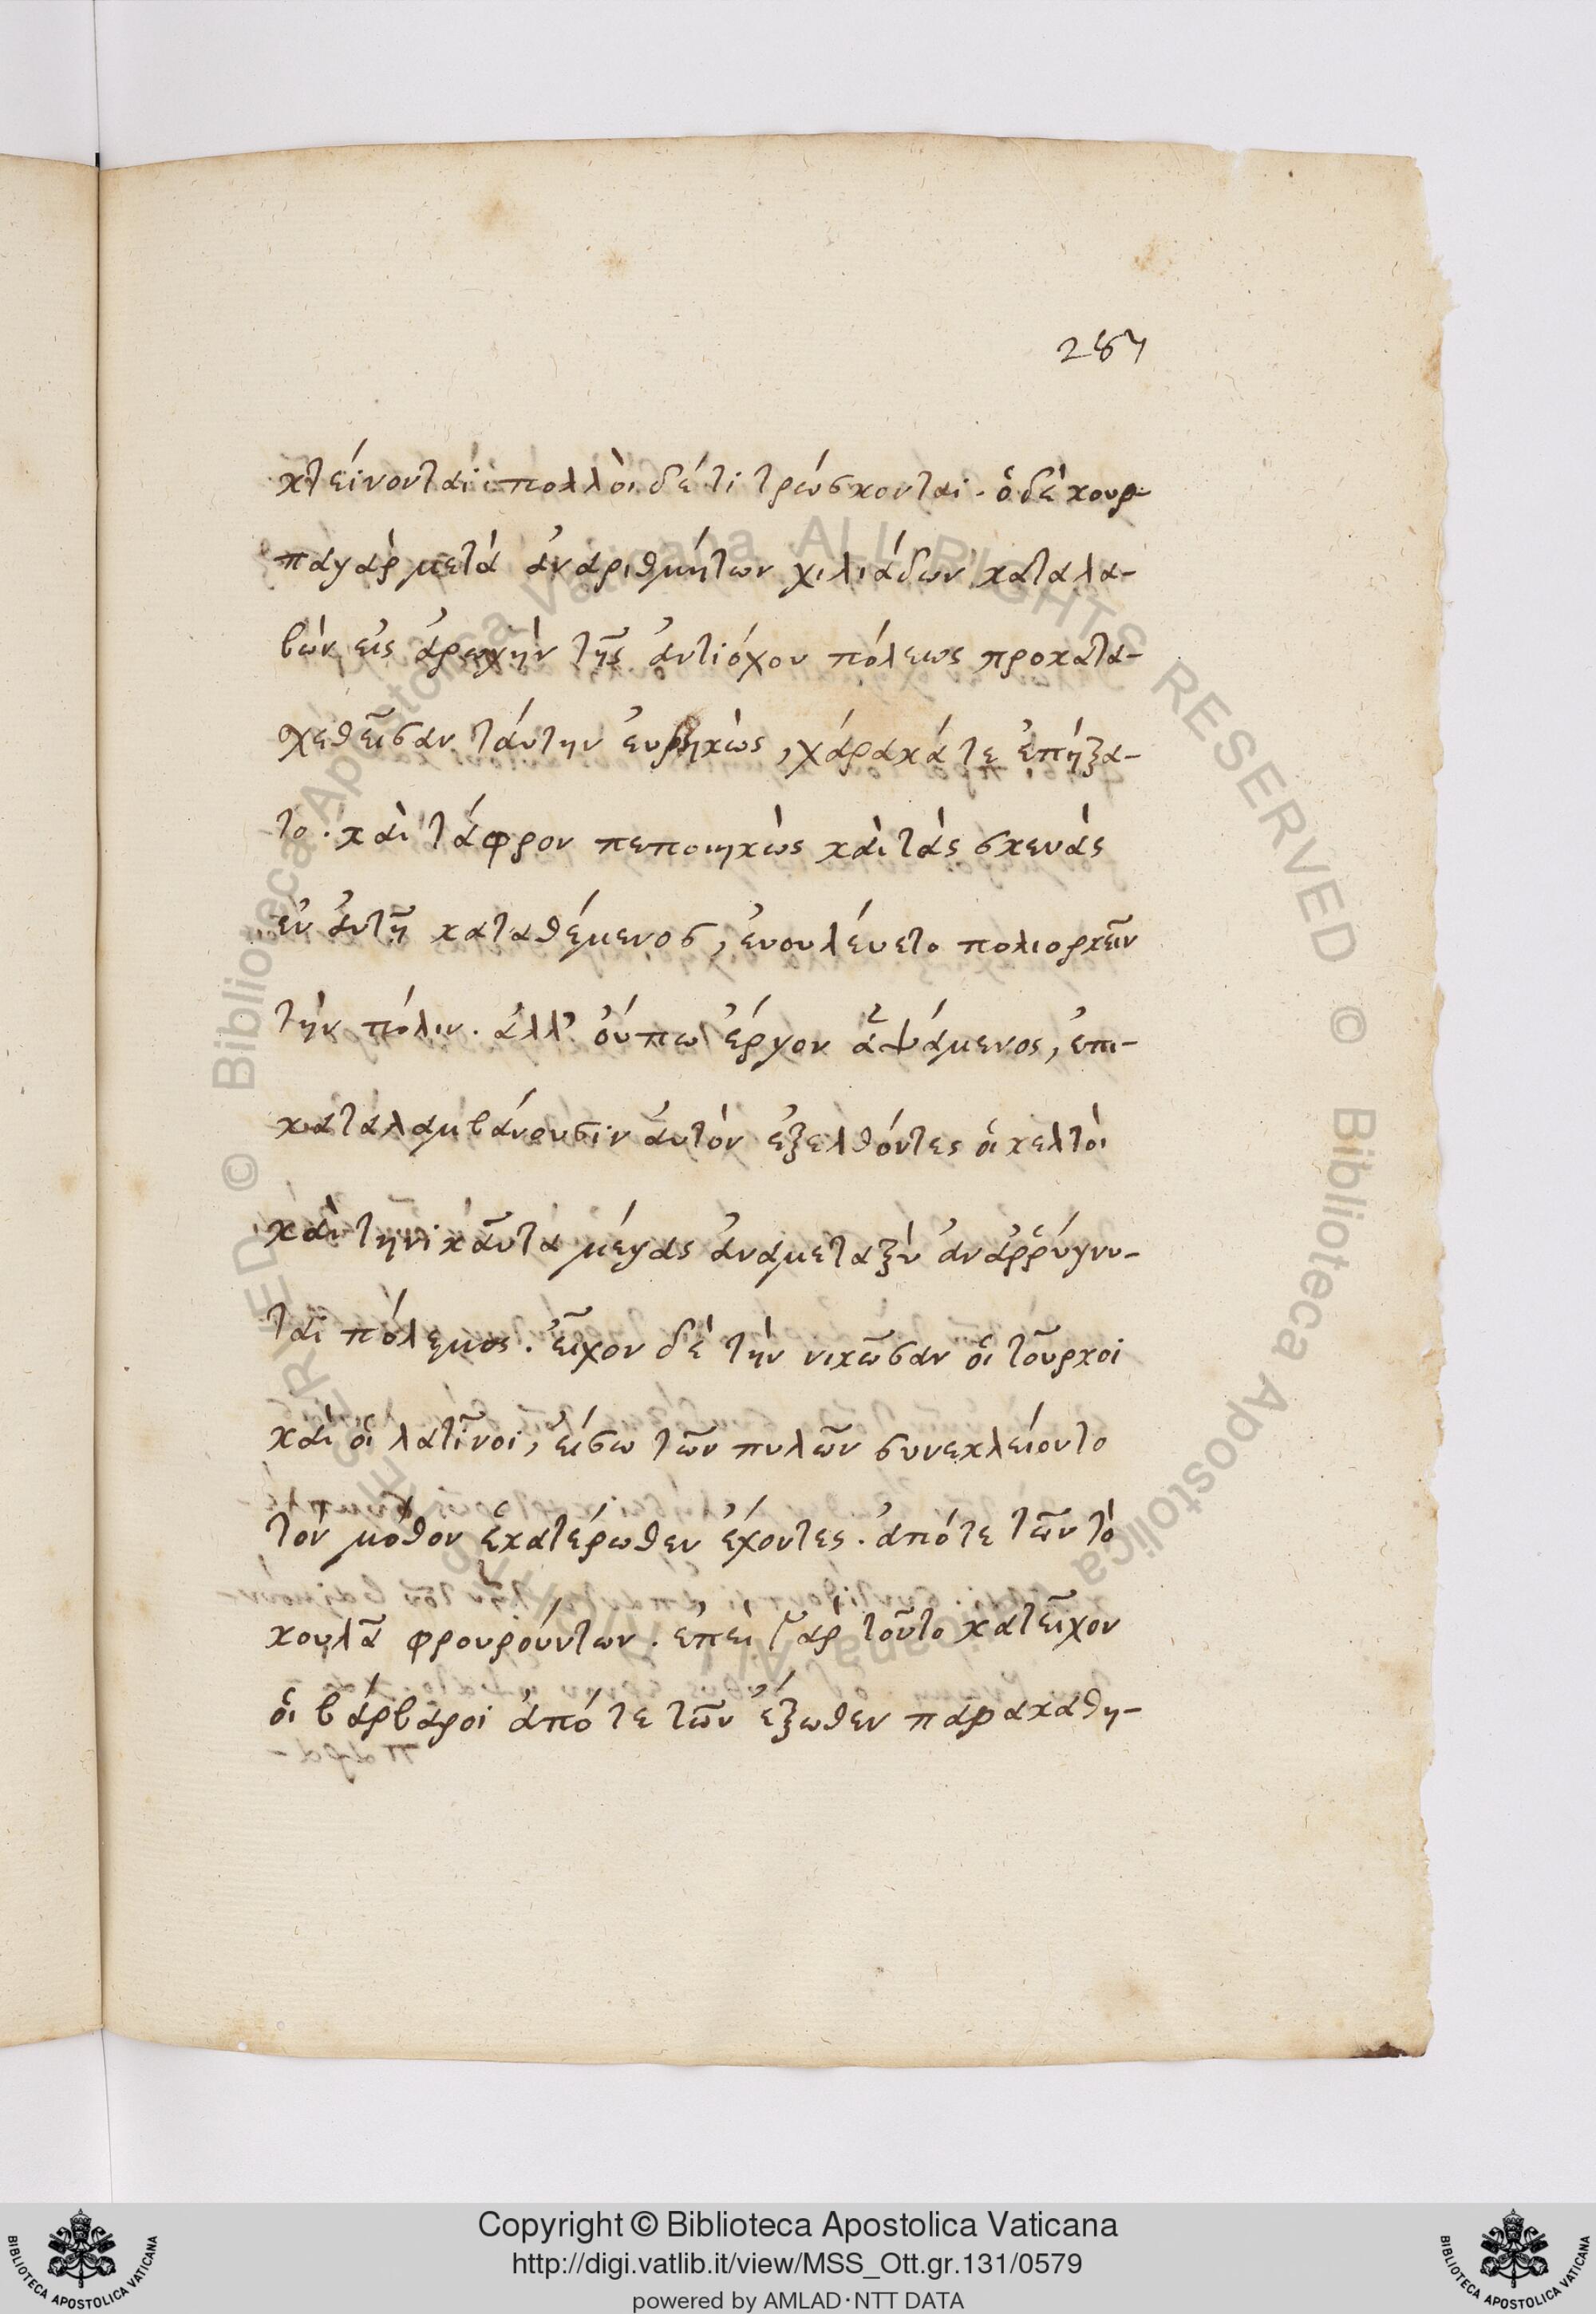 287
κτείνονται· πολλοὶ δέ τιτρώσκονται. ὁ δὲ κουρ-
παγὰρ μετὰ ἀναριθμήτων χιλιάδων καταλα-
βὼν εἰς ἀρωγὴν τῆς ἀντιόχου πόλεως προκατα-
σχεθεῖσαν ταύτην εὑρηκὼς, χάρακά τε ἐπήξα-
το. καὶ τάφρον πεποιηκὼς καὶ τὰς σκευὰς
ἐν αὐτῆ καταθέμενος, ἐβουλεύετο πολιορκεῖν
τὴν πόλιν. ἀλλ' οὔπω ἔργον ἁψάμενος, ἐπι-
καταλαμβάνουσιν αὐτὸν ἐξελθόντες οἱ κελτοὶ
καὶ τηνικαῦτα μέγας ἀναμεταξὺ ἀναῤῥύγνυ-
ται πόλεμος. εἶχον δὲ τὴν νικῶσαν οἱ τοῦρκοι
καὶ οἱ λατῖνοι, εἴσω τῶν πυλῶν συνεκλείοντο
τὸν μόθον ἑκατέρωθεν ἔχοντες. ἀπό τε τῶν τὸ
κουλᾶ φρουρούντων. ἐπεὶ γὰρ τοῦτο κατεῖχον
οἱ βάρβαροι ἀπό τε τῶν ἔξωθεν παρακαθη-
Copyright © Biblioteca Apostolica Vaticana
http://digi.vatlib.it/view/MSS_Ott.gr.131/0579
powered by AMLAD·NTT DATA
BIBLIOTECA APOSTOLICA VATICANA
BIBLIOTECA APOSTOLICA VATICANA